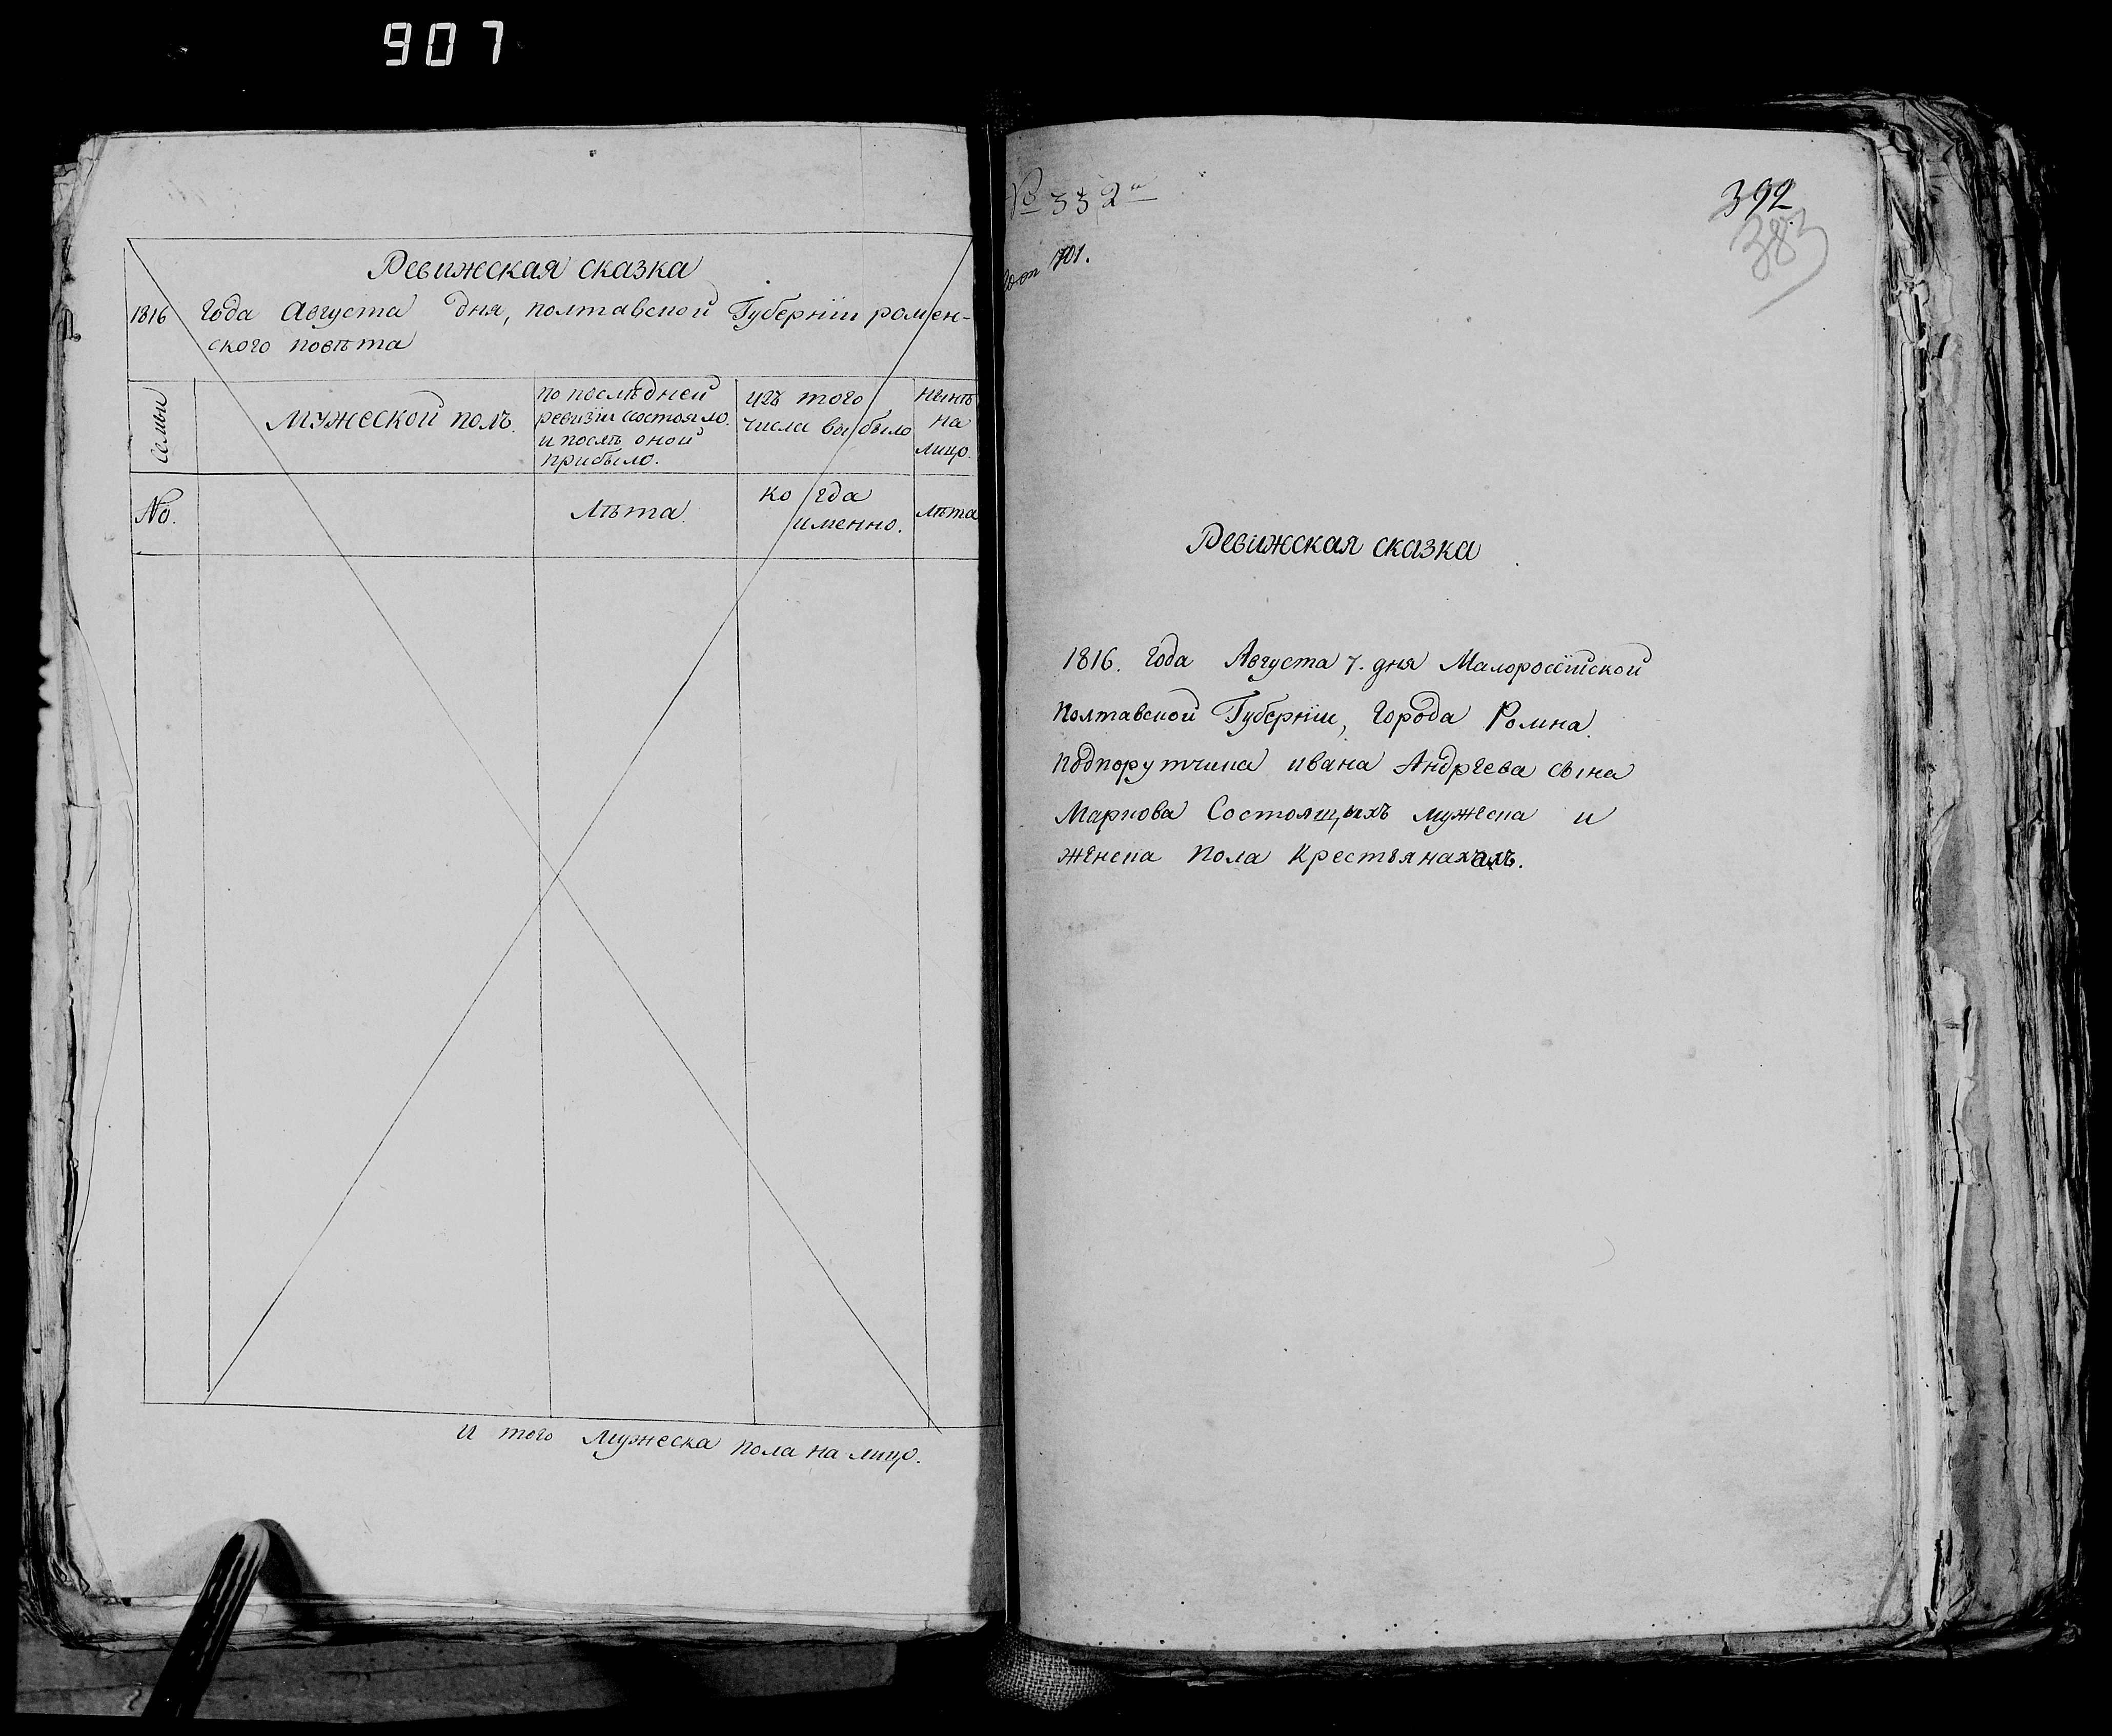 907
Ревижская сказка
1816 года Августа дня, полтавской Губернїи ромен-
ского повѣта
Семьи
мужеской полъ.
по послѣдней
ревизїи состояло.
и послѣ оной
прибыло.
изъ того
числа выбыло
нынѣ
на
лицо.
№.
Лѣта.
когда
именно.
лѣта
и того мужеска пола на лицо.
№ 332
701.
392
383
Ревижская сказка
1816. года Августа 7. дня Малоросїйской
полтавской Губернїи, города Ромна.
подпорутчика ивана Андреева сына
Маркова Состоящихъ мужеска и
женска пола Крестьянахъ.